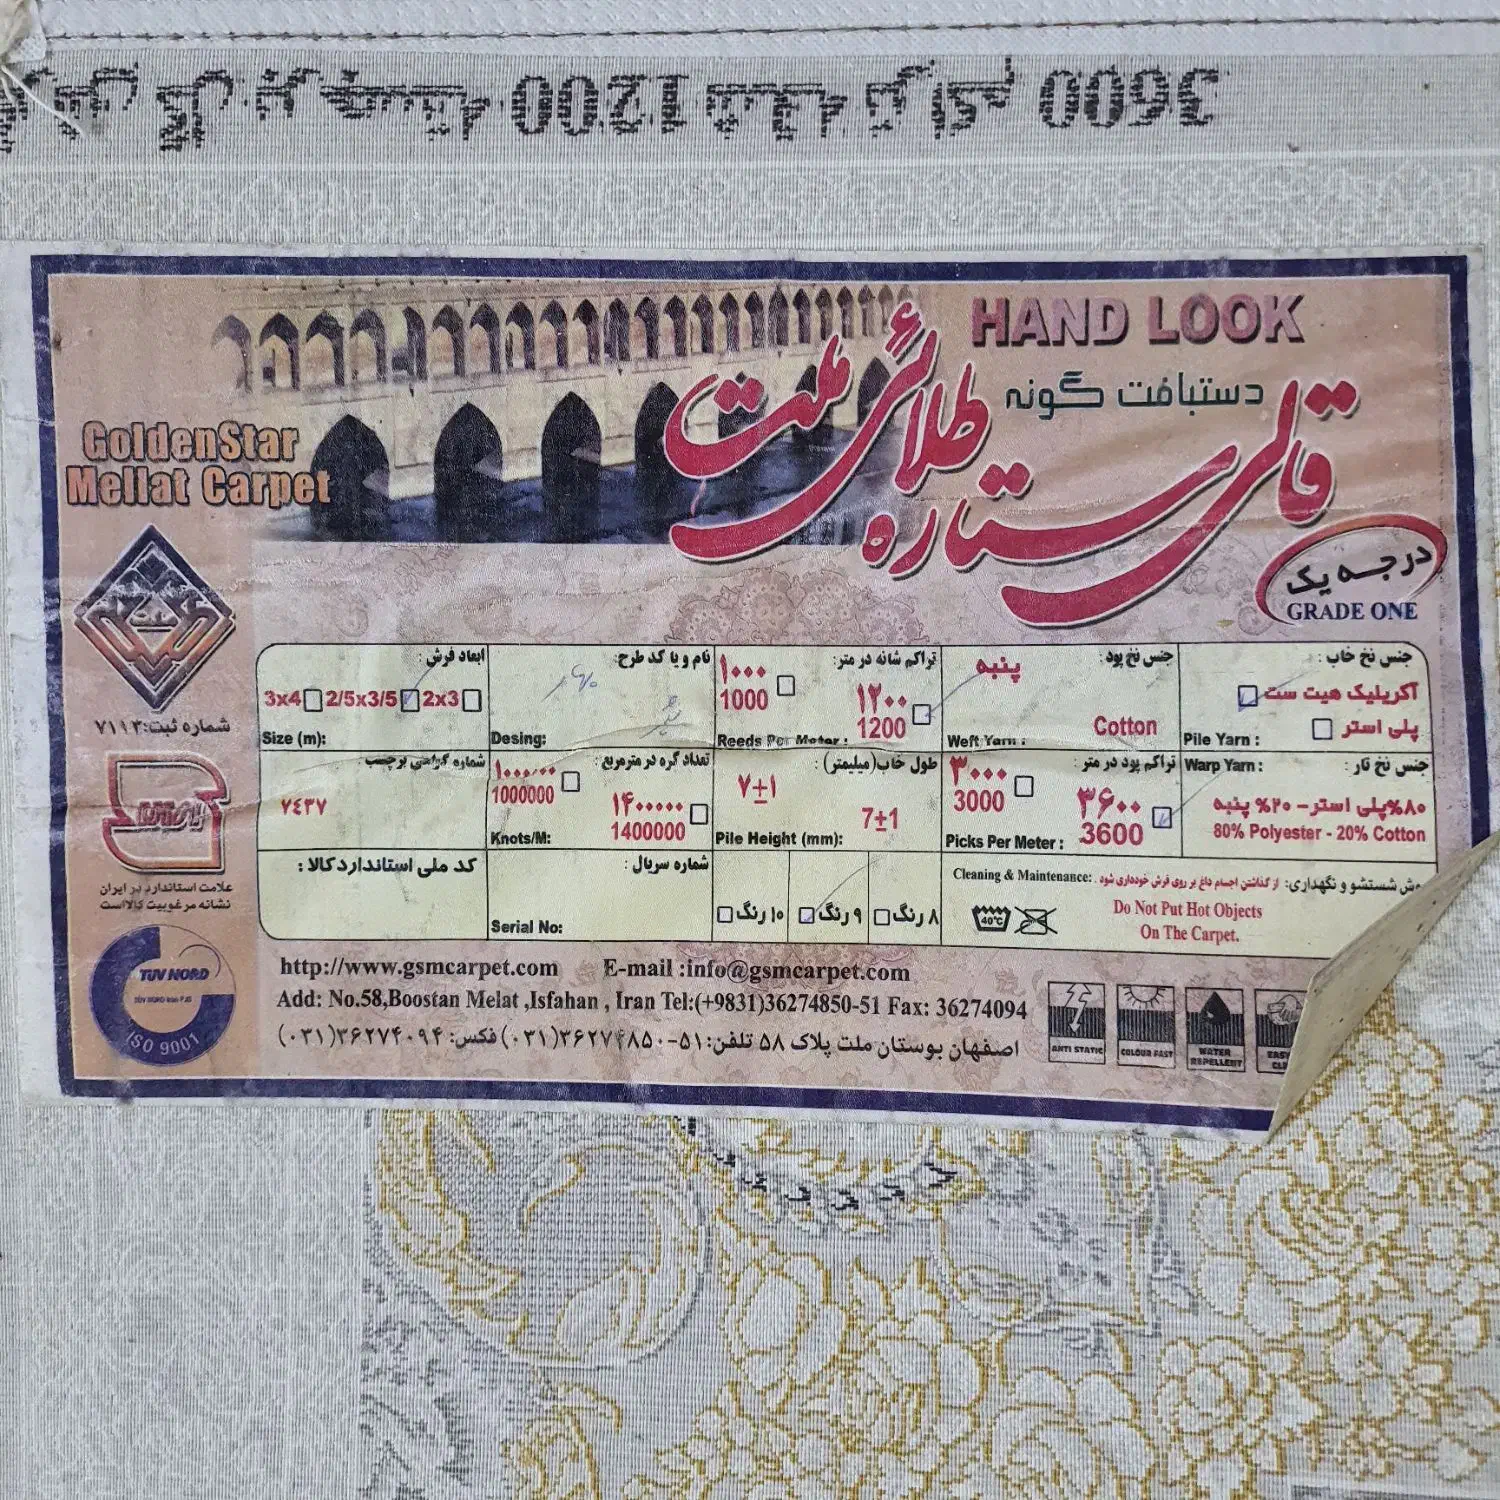 3600
1200
HAND LOOK
دستبافت گونه
قالی ستاره طلائی ملت
GoldenStar
Mellat Carpet
درجه یک
GRADE ONE
شماره ثبت: ۷۱۱۳
علامت استاندارد در ایران
نشانه مرغوبیت کالااست
TUV NORD
TUV NORD Iran PJS
ISO 9001
جنس نخ خاب :
آکریلیک هیت ست
پلی استر
Pile Yarn :
جنس نخ پود :
پنبه
Cotton
Weft Yarn :
تراکم شانه در متر:
۱۰۰۰
1000
۱۲۰۰
1200
Reeds Per Meter :
نام و یا کد طرح:
Desing:
ابعاد فرش :
3x4 2/5x3/5 2x3
Size (m):
جنس نخ تار :
Warp Yarn :
۸۰%پلی استر – ۲۰% پنبه
80% Polyester - 20% Cotton
تراکم پود در متر :
۳۰۰۰
3000
۳۶۰۰
3600
Picks Per Meter :
طول خاب(میلیمتر) :
۷±۱
7±1
Pile Height (mm):
تعداد گره در مترمربع :
۱۰۰۰۰۰۰
1000000
۱۴۰۰۰۰۰
1400000
Knots/M:
شماره گواهی برچسب :
۷٤۳۷
Cleaning & Maintenance:
شستشو و نگهداری: از گذاشتن اجسام داغ بر روی فرش خودداری شود
40°C
Do Not Put Hot Objects
On The Carpet.
۸ رنگ ۹ رنگ ۱۰ رنگ
شماره سریال :
Serial No:
کد ملی استاندارد کالا :
http://www.gsmcarpet.com E-mail :info@gsmcarpet.com
Add: No.58,Boostan Melat ,Isfahan , Iran Tel:(+9831)36274850-51 Fax: 36274094
اصفهان بوستان ملت پلاک ۵۸ تلفن: ۵۱-۳۶۲۷۴۸۵۰(۰۳۱) فکس: ۳۶۲۷۴۰۹۴(۰۳۱)
ANTI STATIC
COLOUR FAST
WATER
REPELLENT